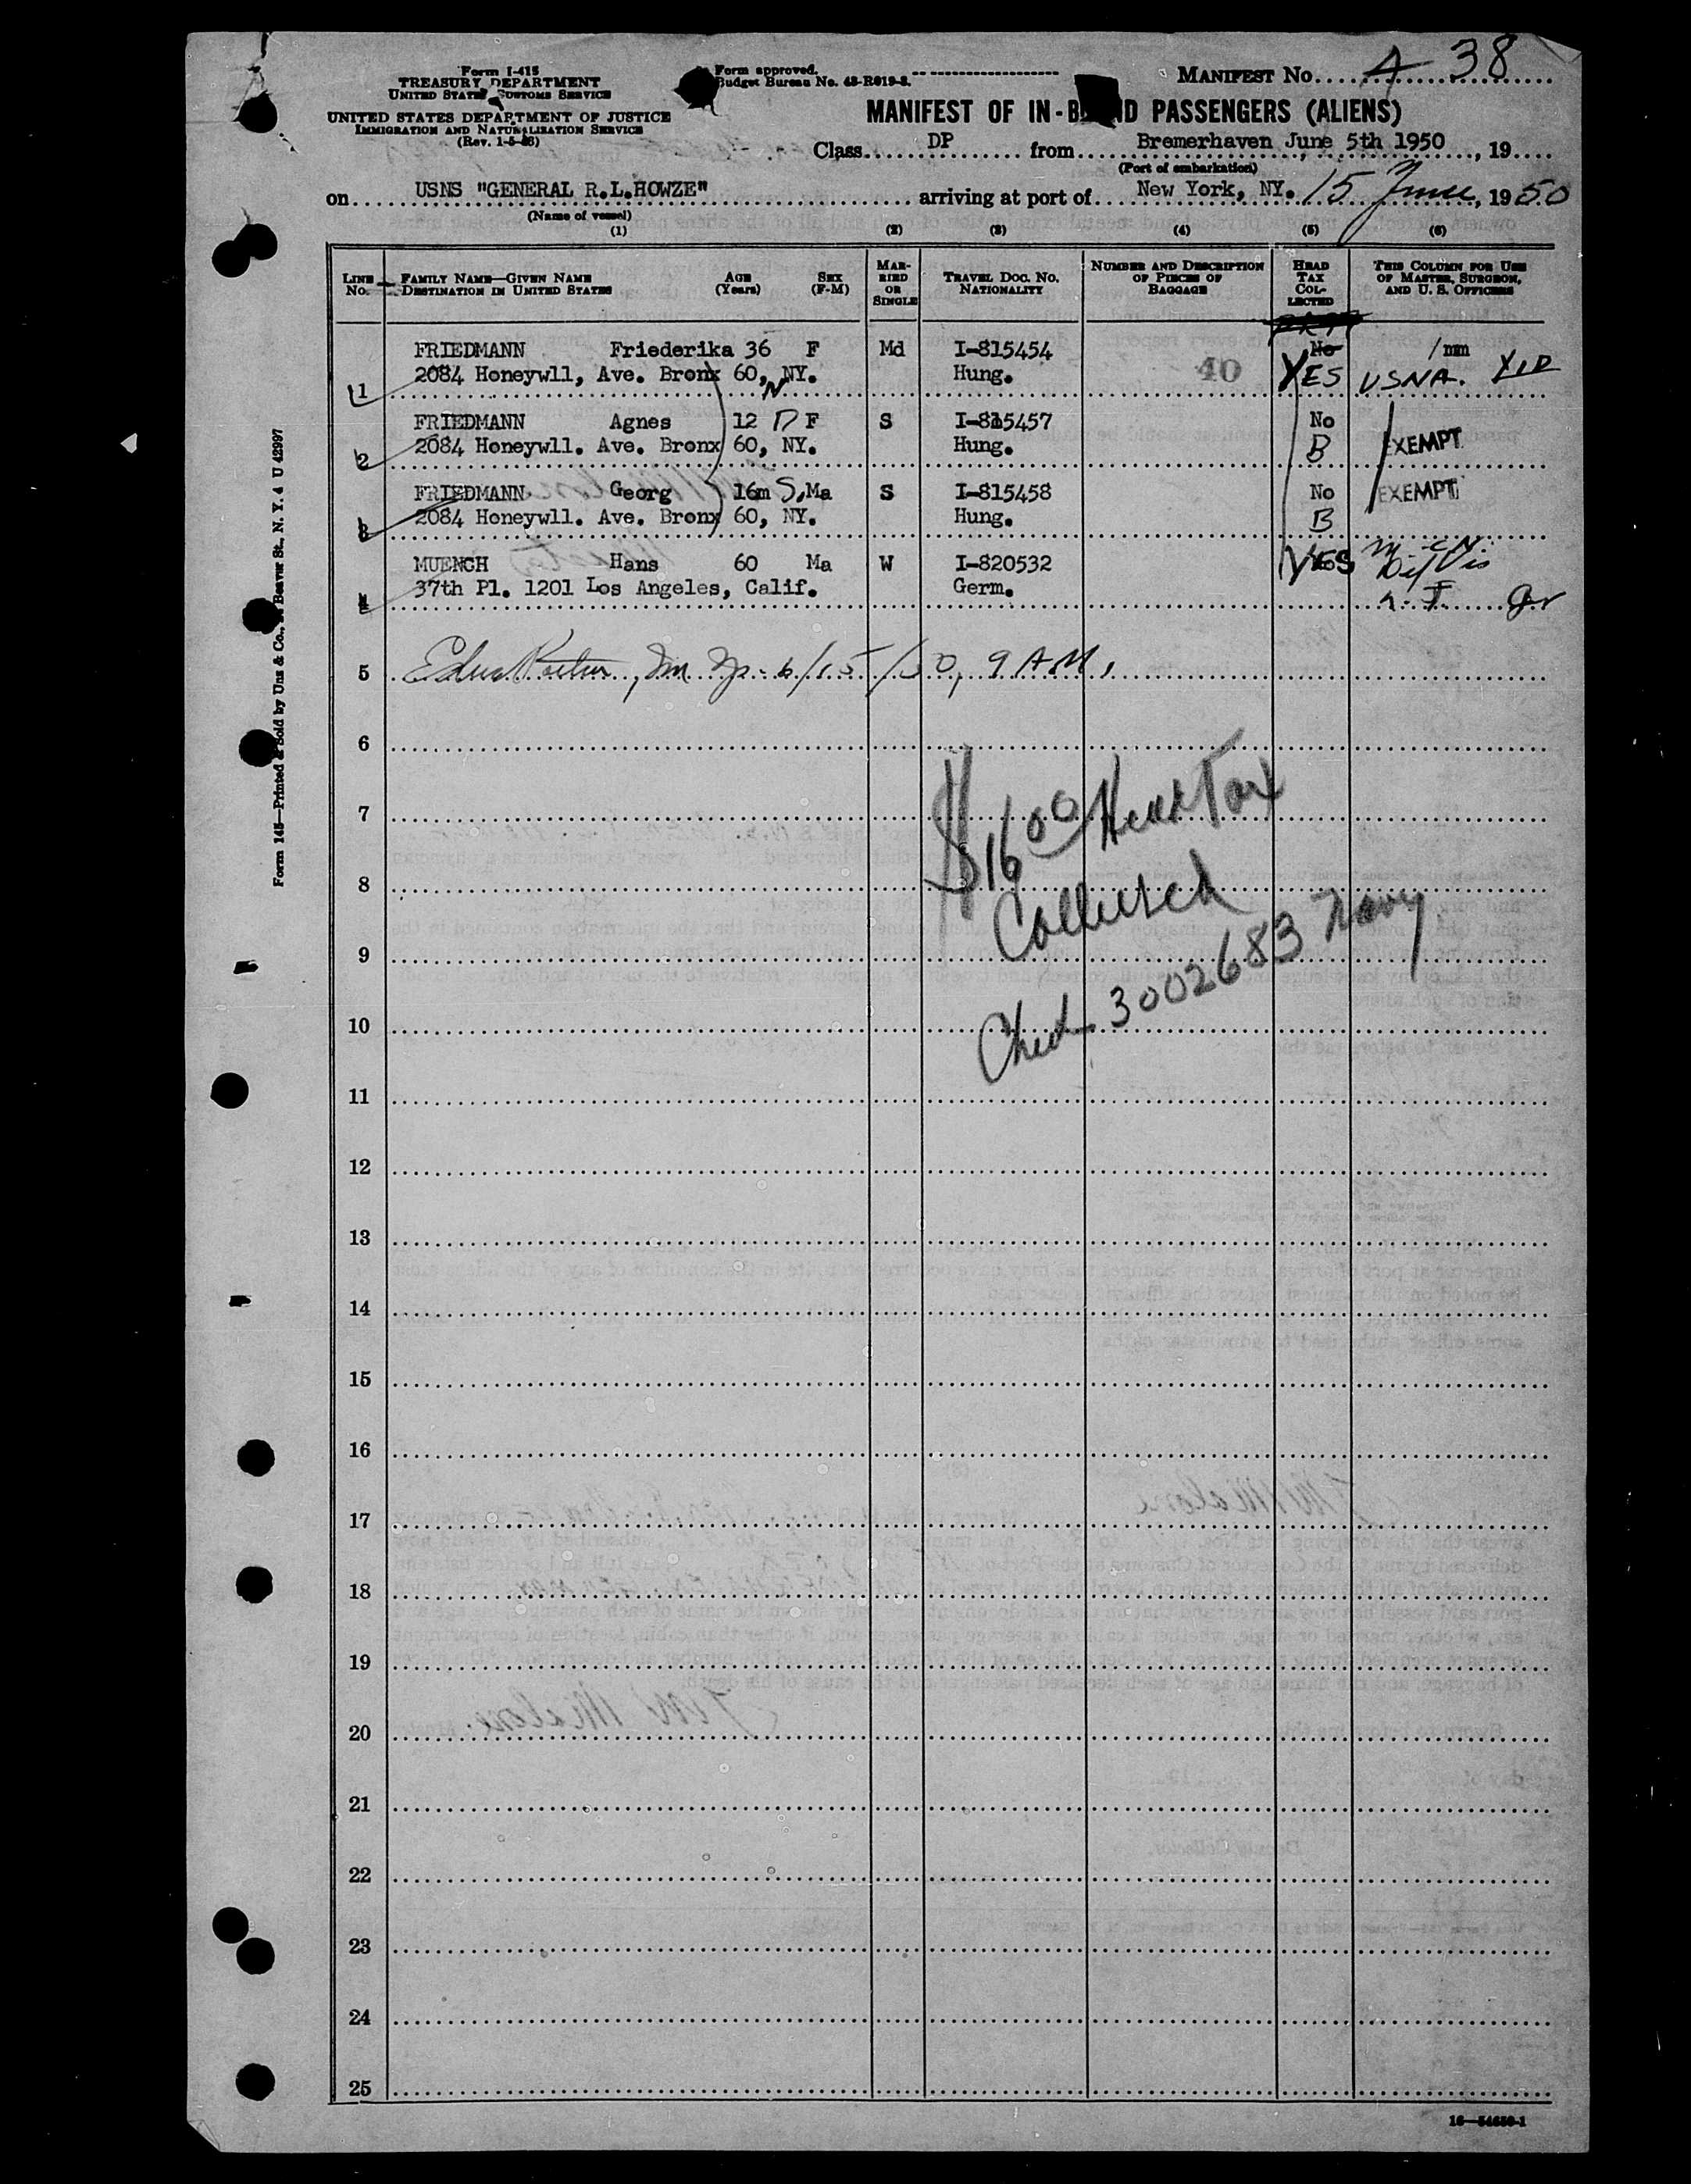 Form I-415
TREASURY DEPARTMENT
UNITED STATES CUSTOMS SERVICE
UNITED STATES DEPARTMENT OF JUSTICE
IMMIGRATION AND NATURALIZATION SERVICE
Form approved.
Budget Bureau No. 43-R019-2.
MANIFEST No. A 38
MANIFEST OF IN-BOUND PASSENGERS (ALIENS)
Class DP from Bremerhaven June 5th 1950, 19
(Port of embarkation)
on USNS "GENERAL R.L.HOWZE" arriving at port of New York, NY. 15 June, 1950
(Name of vessel)
(1) (2) (3) (4) (5) (6)
LINE No. FAMILY NAME—GIVEN NAME DESTINATION IN UNITED STATES AGE (Years) SEX (F-M) MARRIED OR SINGLE TRAVEL DOC. NO. NATIONALITY NUMBER AND DESCRIPTION OF PIECES OF BAGGAGE HEAD TAX COLLECTED THIS COLUMN FOR USE OF MASTER, SURGEON, AND U. S. OFFICERS
FRIEDMANN Friederika 36 F Md I-815454 No 1 mm
1 2084 Honeywll, Ave. Bronx 60, NY. N Hung. 40 YES USNA.
FRIEDMANN Agnes 12 D F S I-815457 No
2 2084 Honeywll. Ave. Bronx 60, NY. Hung. B EXEMPT
FRIEDMANN Georg 16m S, Ma S I-815458 No EXEMPT
3 2084 Honeywll. Ave. Bronx 60, NY. Hung. B
MUENCH Hans 60 Ma W I-820532 YES
4 37th Pl. 1201 Los Angeles, Calif. Germ.
5 6/15/50, 9 A.M.
6
7 $16 00 Head Tax
8 Collected
9
10 Check 3002683 Navy
11
12
13
14
15
16
17
18
19
20
21
22
23
24
25
Form 145—Printed & Sold by Unz & Co., Beaver St., N. Y. 4 U 42997